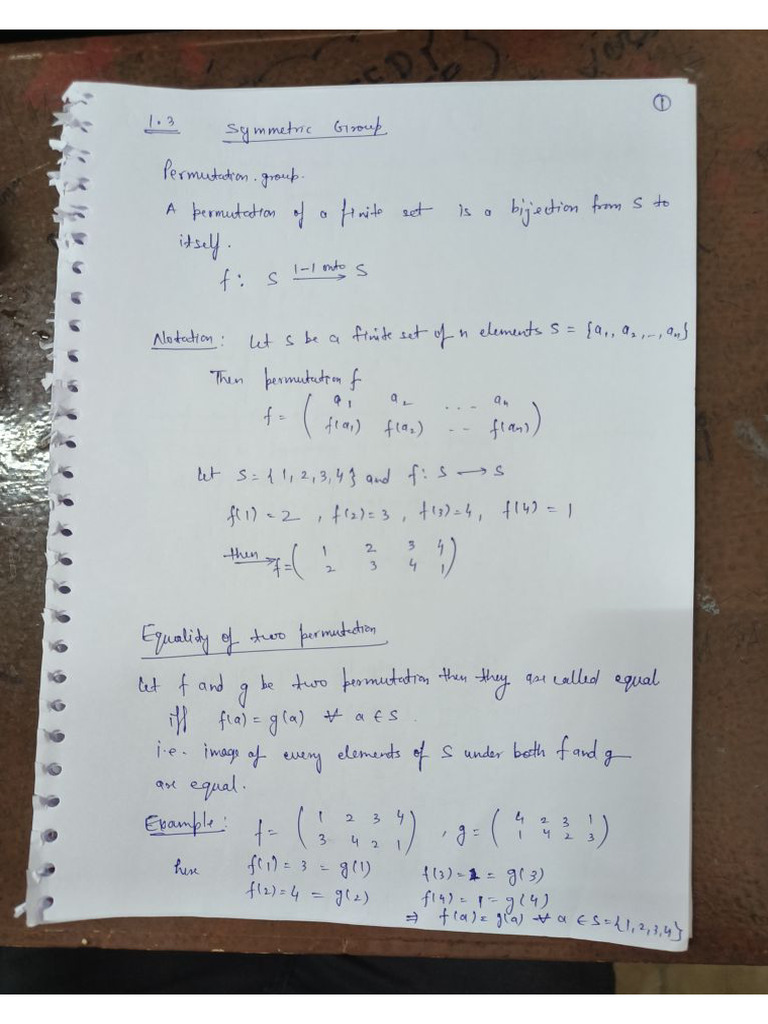 ①
1.3 Symmetric Group
Permutation group.
A permutation of a finite set is a bijection from S to
itself.
f: S 1-1 onto → S
Notation: Let S be a finite set of n elements S = {a₁, a₂, --, aₙ}
Then permutation f
f = ( a₁ a₂ ... aₙ
f(a₁) f(a₂) -- f(an) )
Let S = {1, 2, 3, 4} and f: S → S
f(1) = 2 , f(2) = 3 , f(3) = 4, f(4) = 1
then → f = ( 1 2 3 4
2 3 4 1 )
Equality of two permutation
Let f and g be two permutation then they are called equal
iff f(a) = g(a) ∀ a ∈ S.
i.e. image of every elements of S under both f and g
are equal.
Example: f = ( 1 2 3 4 , g = ( 4 2 3 1
3 4 2 1 ) 1 4 2 3 )
here f(1) = 3 = g(1) f(3) = = g(3)
f(2) = 4 = g(2) f(4) = 1 = g(4)
⇒ f(a) = g(a) ∀ a ∈ S = {1, 2, 3, 4}